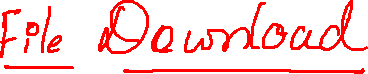 File Download